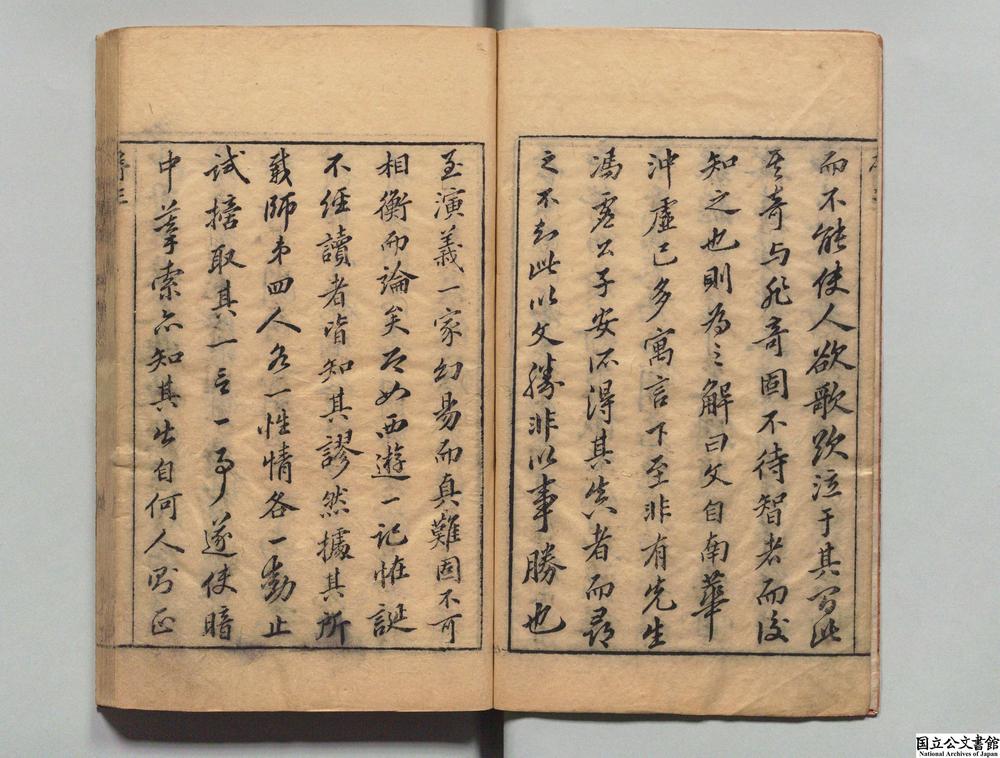 而不能使人欲歌欲泣于其間此
其奇与非奇固不待智者而後
知之也則為之解曰文自南華
沖虛已多寓言下至非有先生
馮虛公子安所得其真者而尋
之不知此以文勝非以事勝也
至演義一家幻易而真難固不可
相衡而論矣即如西遊一記怪誕
不經讀者皆知其謬然據其所
載師弟四人各一性情各一動止
試摘取其一言一事遂使暗
中摹索亦知其出自何人則正
国立公文書館
National Archives of Japan